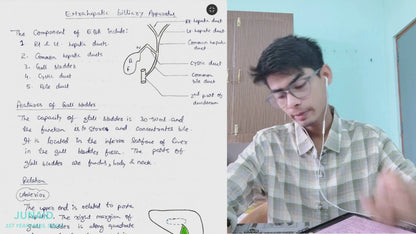 Extrahepatic biliary Apparatus
The Component of EBA include:
1 Rt & Lt hepatic duct
2. Common hepatic ducts
3. Gall bladder
4. Cystic duct
5. Bile duct
Rt hepatic duct
Lt hepatic duct
Common hepatic duct
Cystic duct
Common bile duct
2nd part of duodenum
Features of Gall bladder
The capacity of gall bladder is 30-50ml and
the function is to stores and concentrates bile.
It is located in the inferior surface of liver
in the gall bladder fossa. The parts of
gall bladder are fundus, body & neck.
Relation
Anterior
The upper end is related to porta
The right margin of
gall bladder is along quadrate
JUNAID
1ST YEAR